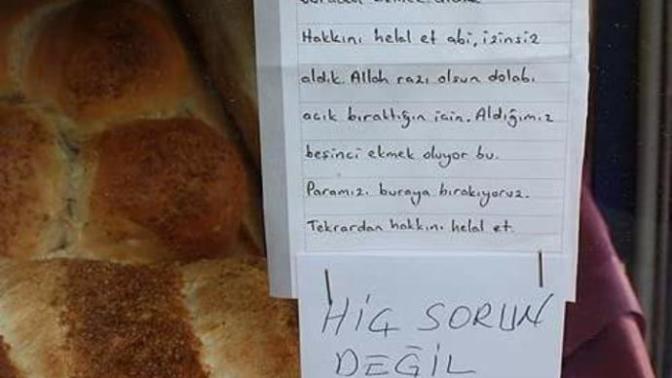 Hakkını helal et abi, izinsiz
aldık. Allah razı olsun dolabı
açık bıraktığın için. Aldığımız
beşinci ekmek oluyor bu.
Paramızı buraya bırakıyoruz.
Tekrardan hakkını helal et.
HİÇ SORUN
DEĞİL